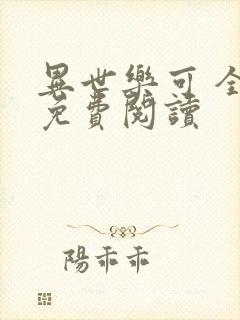 異世樂可 全
免費閱讀
陽乖乖